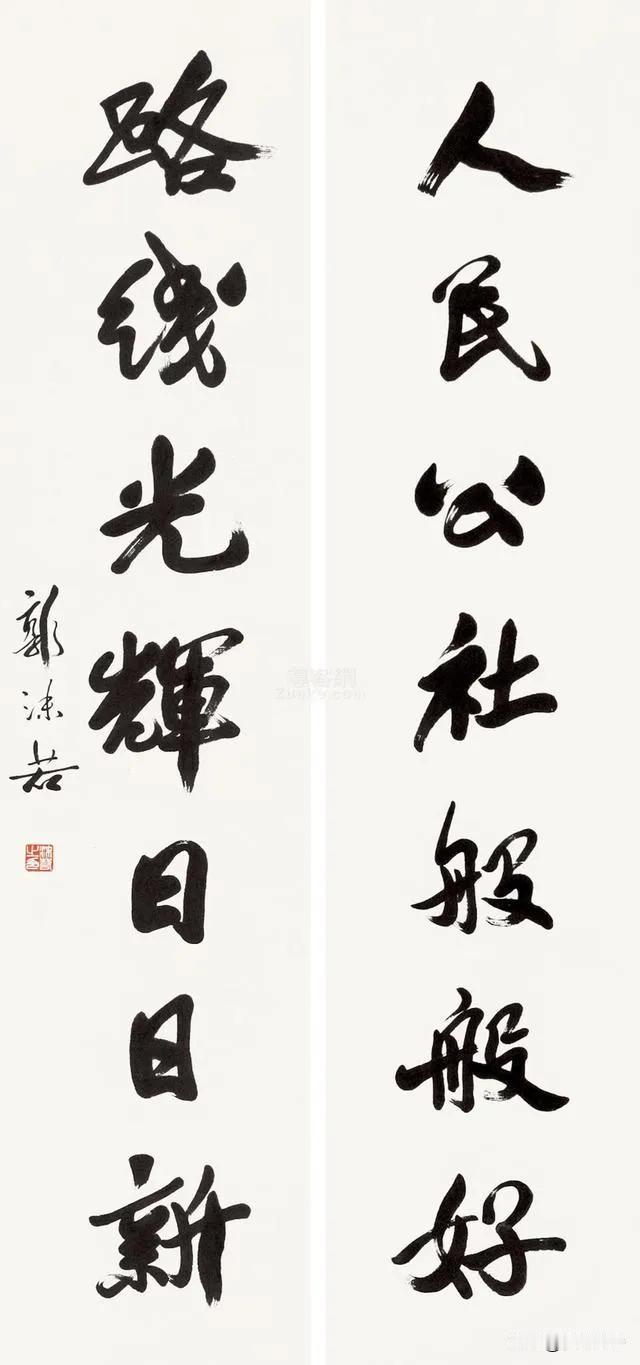 人民公社般般好
路线光輝日日新
郭沫若
尊客網